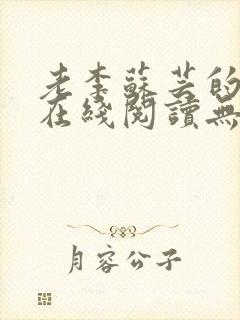 老李蘇芸的
在綫閱讀無
月容公子